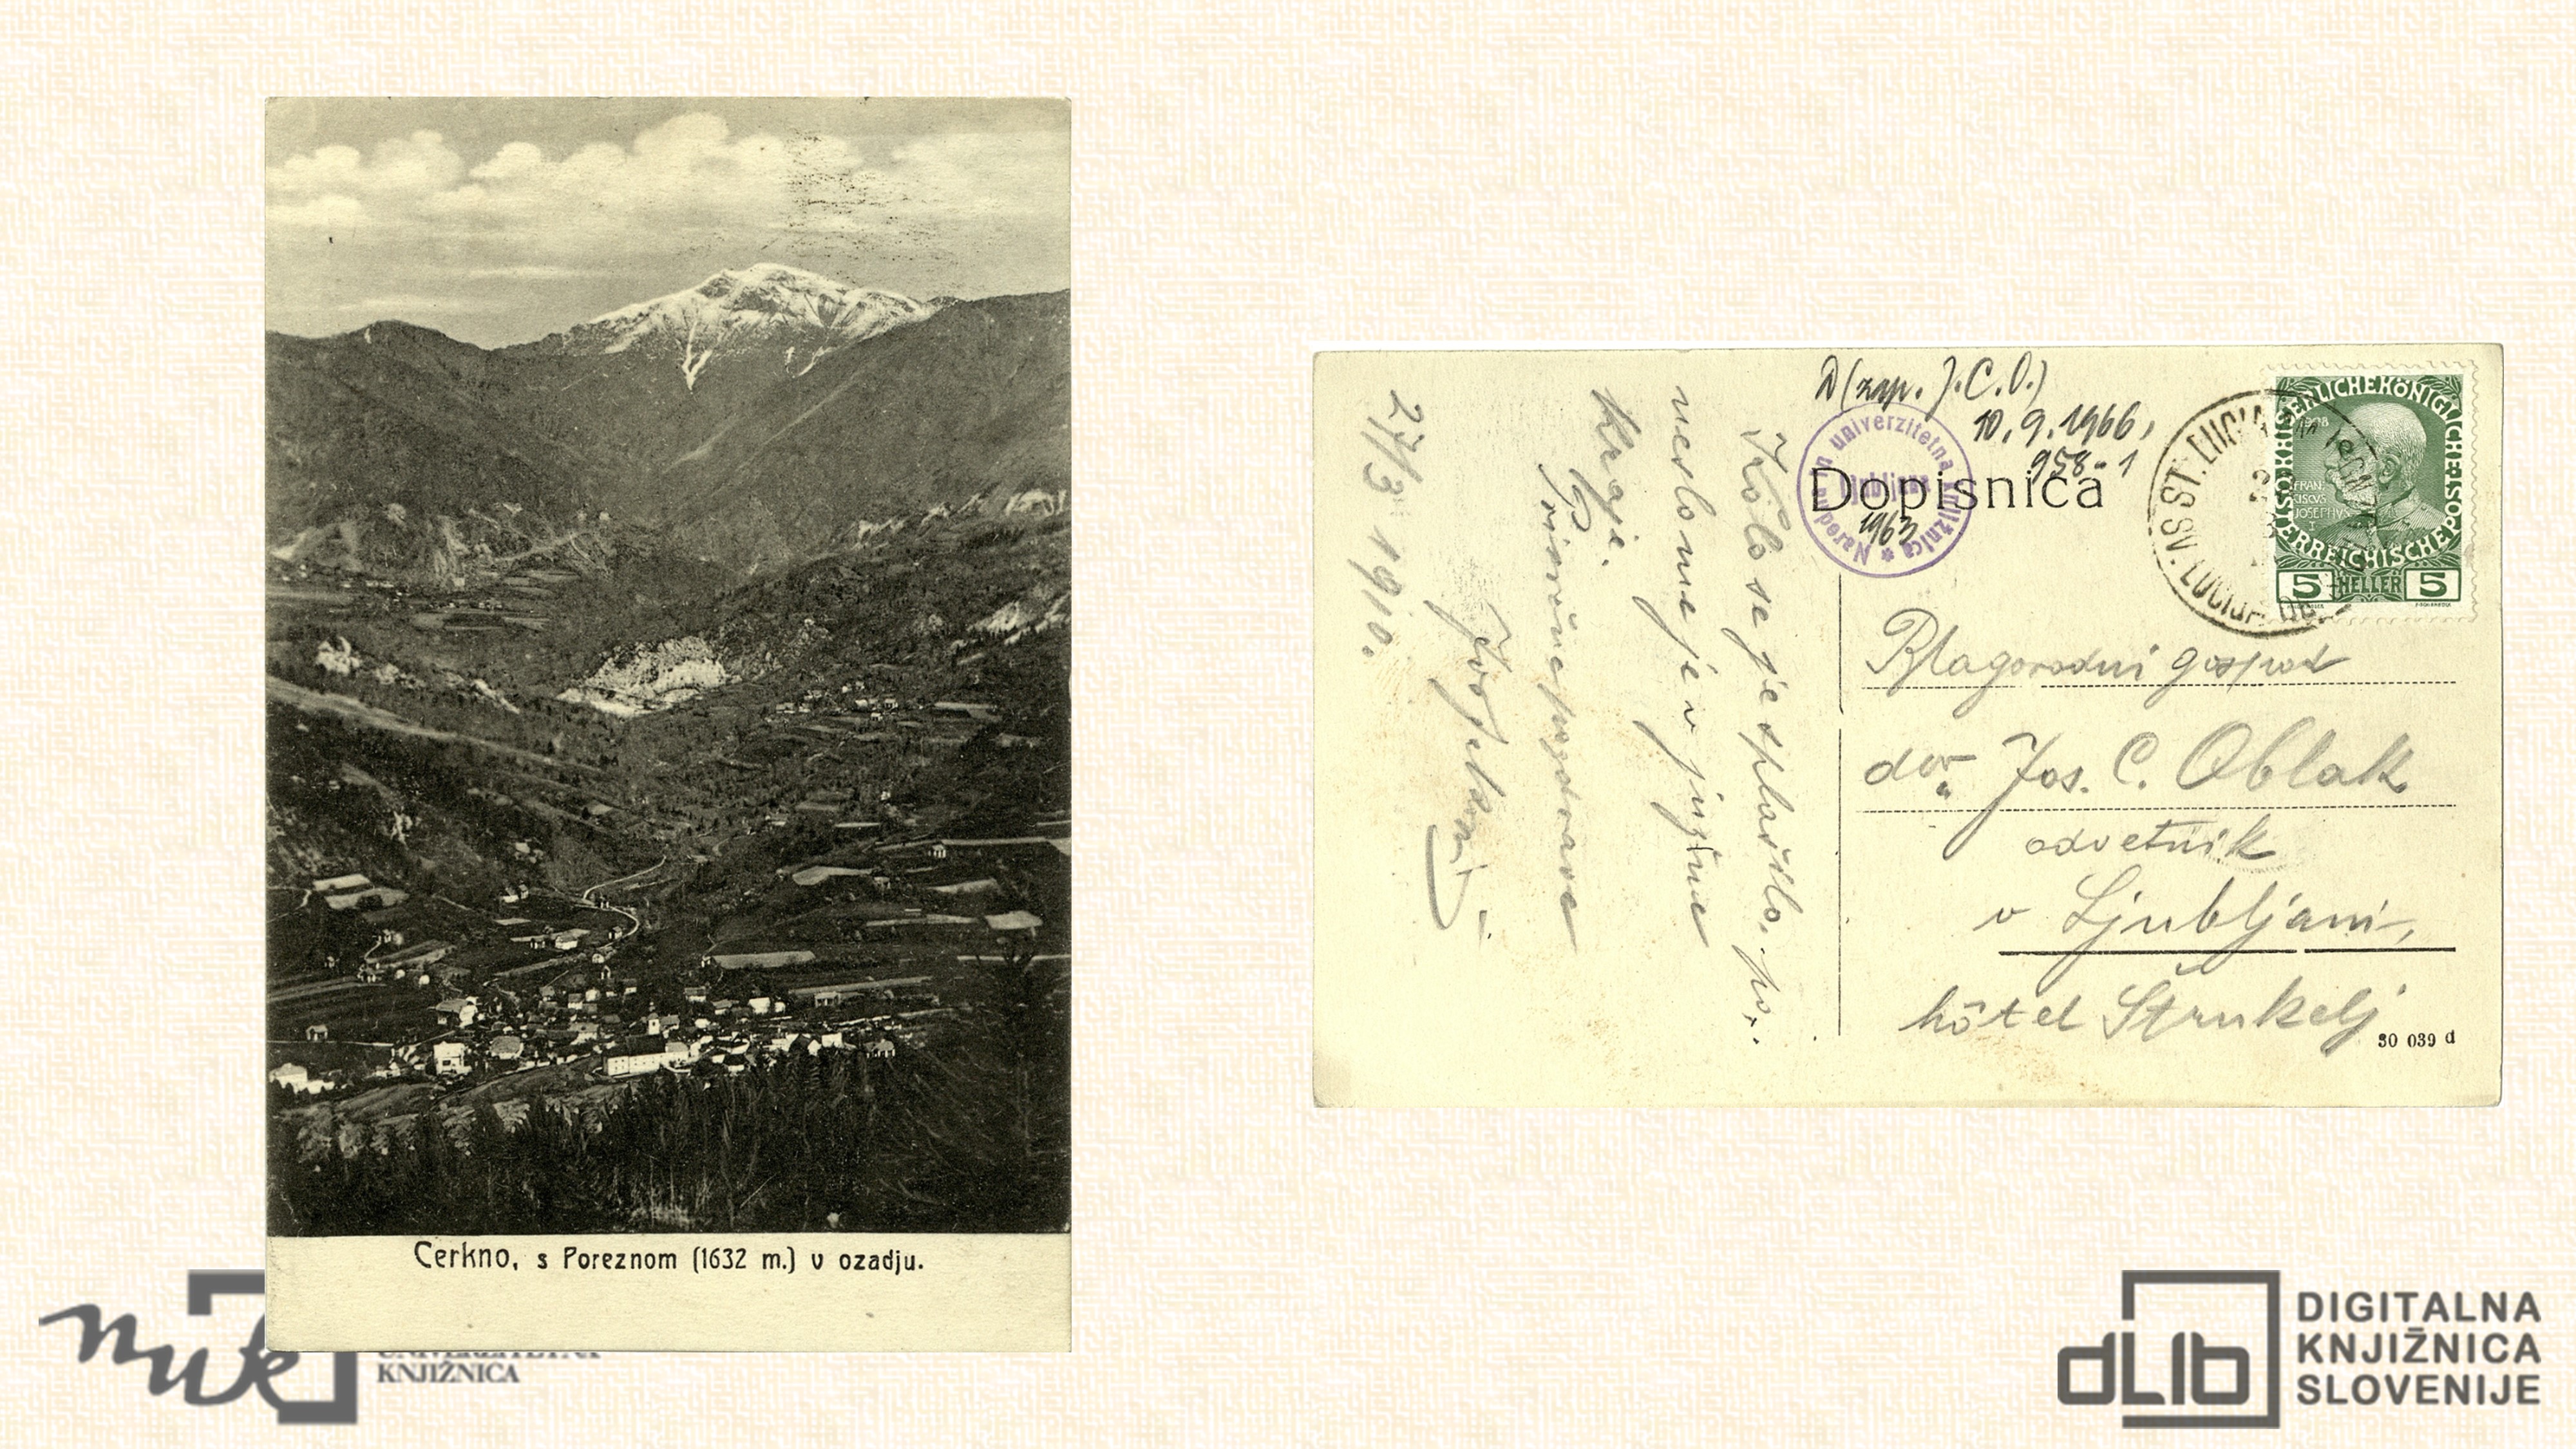 Cerkno, s Poreznom (1632 m.) v ozadju.
D (zap. J. C. O.)
10. 9. 1966,
958-1
Narodna in univerzitetna knjižnica *
Ljubljana
1963
Dopisnica
KAISERLICHE KÖNIGLICHE
ÖSTERREICHISCHE POST
FRAN
CISCVS
JOSEPHVS
I
5 HELLER 5
ST. LUCIA
Kolo se je splašilo, po-
neslo me je v južne
kraje.
Prisrčne pozdrave
27/3 1910.
Blagorodni gospod
dor. Jos. C. Oblak
odvetnik
v Ljubljani,
hôtel Štrukelj
30 039 d
nuk
KNJIŽNICA
dLib
DIGITALNA
KNJIŽNICA
SLOVENIJE